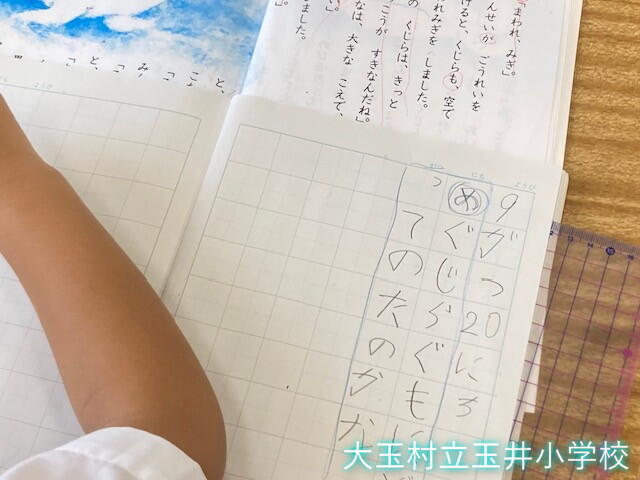 まわれ、みぎ。」
んせいが ごうれいを
けると、くじらも、空で
れみぎを しました。
の くじらは、きっと
こうが すきなんだね。」
なは、大きな こえで、
ました。
9がつ20にち
め ぐじらぐもに
ってのたのか
大玉村立玉井小学校